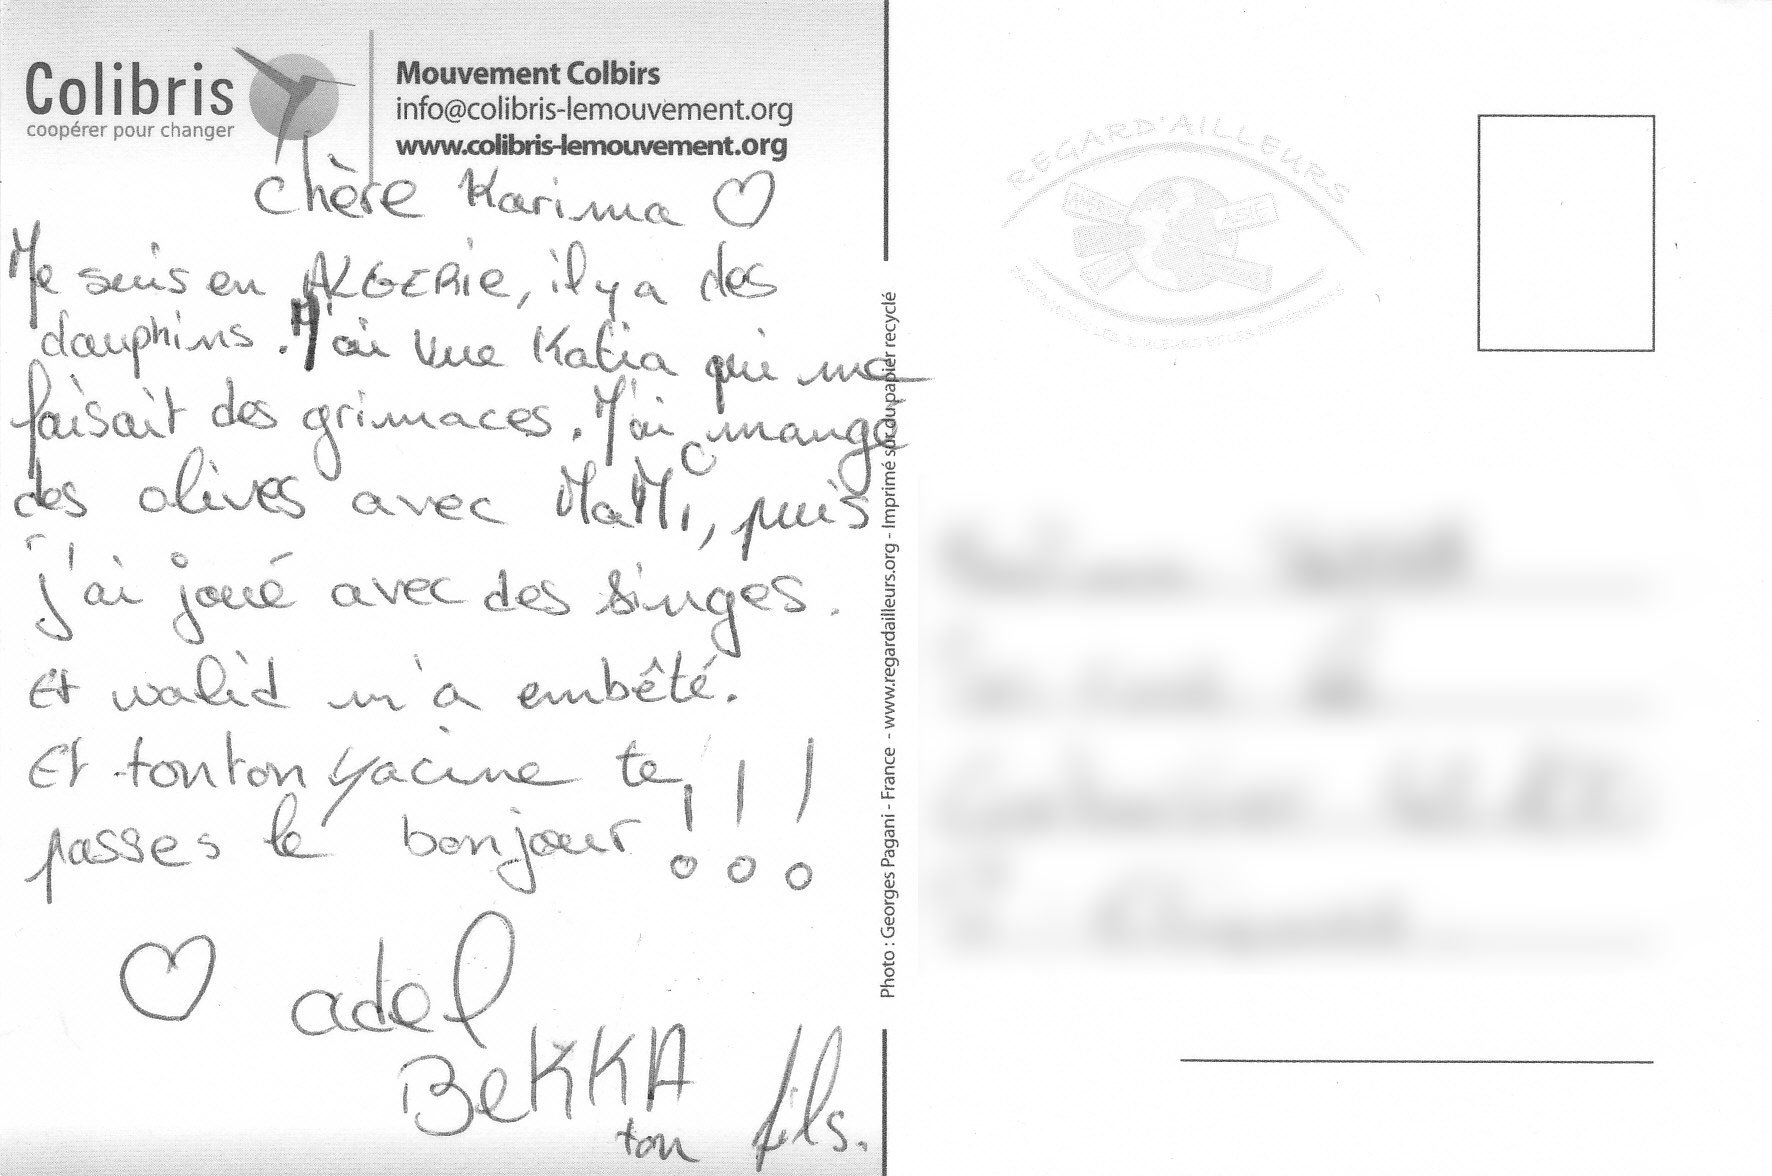 Colibris
coopérer pour changer
Mouvement Colbirs
info@colibris-lemouvement.org
www.colibris-lemouvement.org
chère Karima ♡
Je suis en ALGERiE, il y a des
dauphins. J'ai vue Katia qui me
faisait des grimaces. J'ai mangé
des olives avec MaMi, puis
j'ai joué avec des singes.
Et walid m'a embêté.
Et tonton yacine te
passes le bonjour !!!
♡ adel
BeKKA
ton fils.
Photo : Georges Pagani - France - www.regardailleurs.org - Imprimé sur du papier recyclé
REGARD'AILLEURS
ASIE